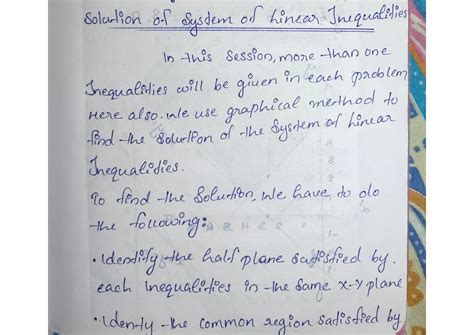 Solution of System of Linear Inequalities
In this session, more than one
Inequalities will be given in each problem
Here also. We use graphical method to
find the solution of the System of Linear
Inequalities.
To find the Solution, We have to do
the following:
• Identify the half plane satisfied by
each Inequalities in the same x-y plane
• Identy the common region satisfied by